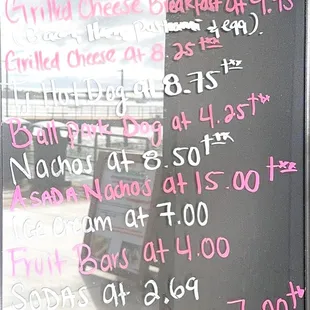 Grilled Cheese Breakfast at 9.75
egg).
Grilled Cheese at 8.25 +tax
Hot Dog at 8.75 +tx
Ball Park Dog at 4.25 +tx
Nachos at 8.50 +tx
ASADA Nachos at 15.00 +tax
Ice Cream at 7.00
Fruit Bars at 4.00
SODAS at 2.69
7.00 +tx